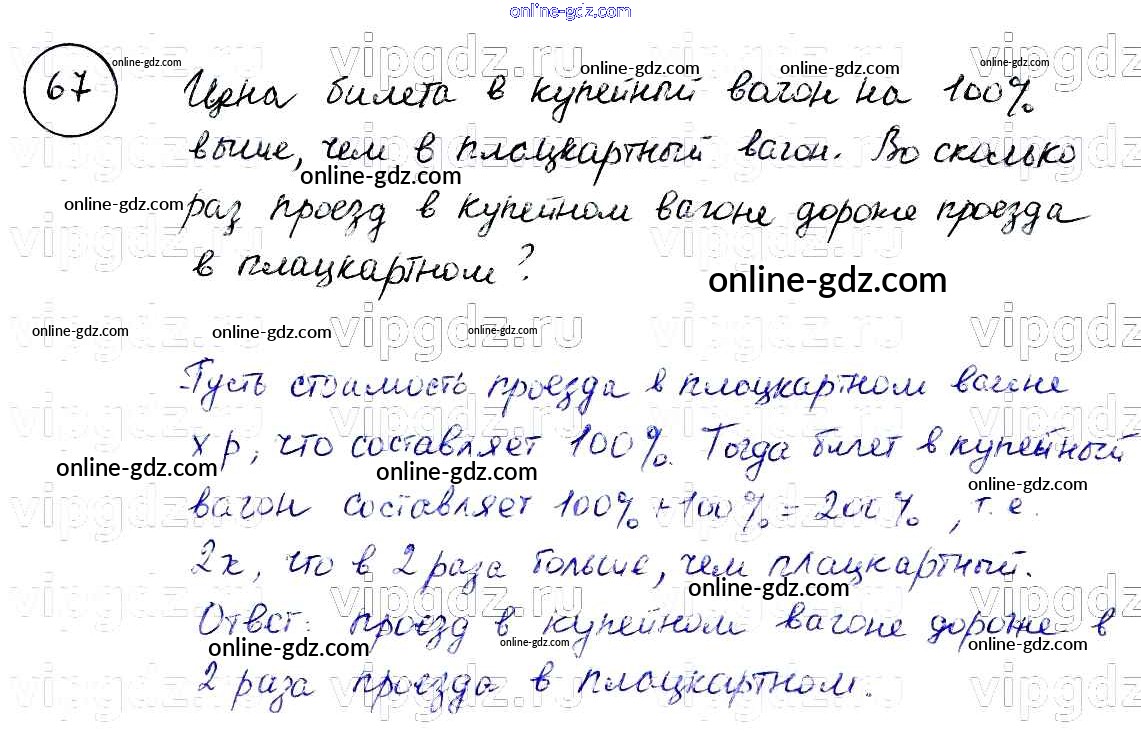 online-gdz.com
67
Цена билета в купейный вагон на 100%
выше, чем в плацкартный вагон. Во сколько
раз проезд в купейном вагоне дороже проезда
в плацкартном?
Пусть стоимость проезда в плацкартном вагоне
х р, что составляет 100%. Тогда билет в купейный
вагон составляет 100% + 100% = 200%, т.е.
2х, что в 2 раза больше, чем плацкартный.
Ответ: проезд в купейном вагоне дороже в
2 раза проезда в плацкартном.
vipgdz.ru
online-gdz.com